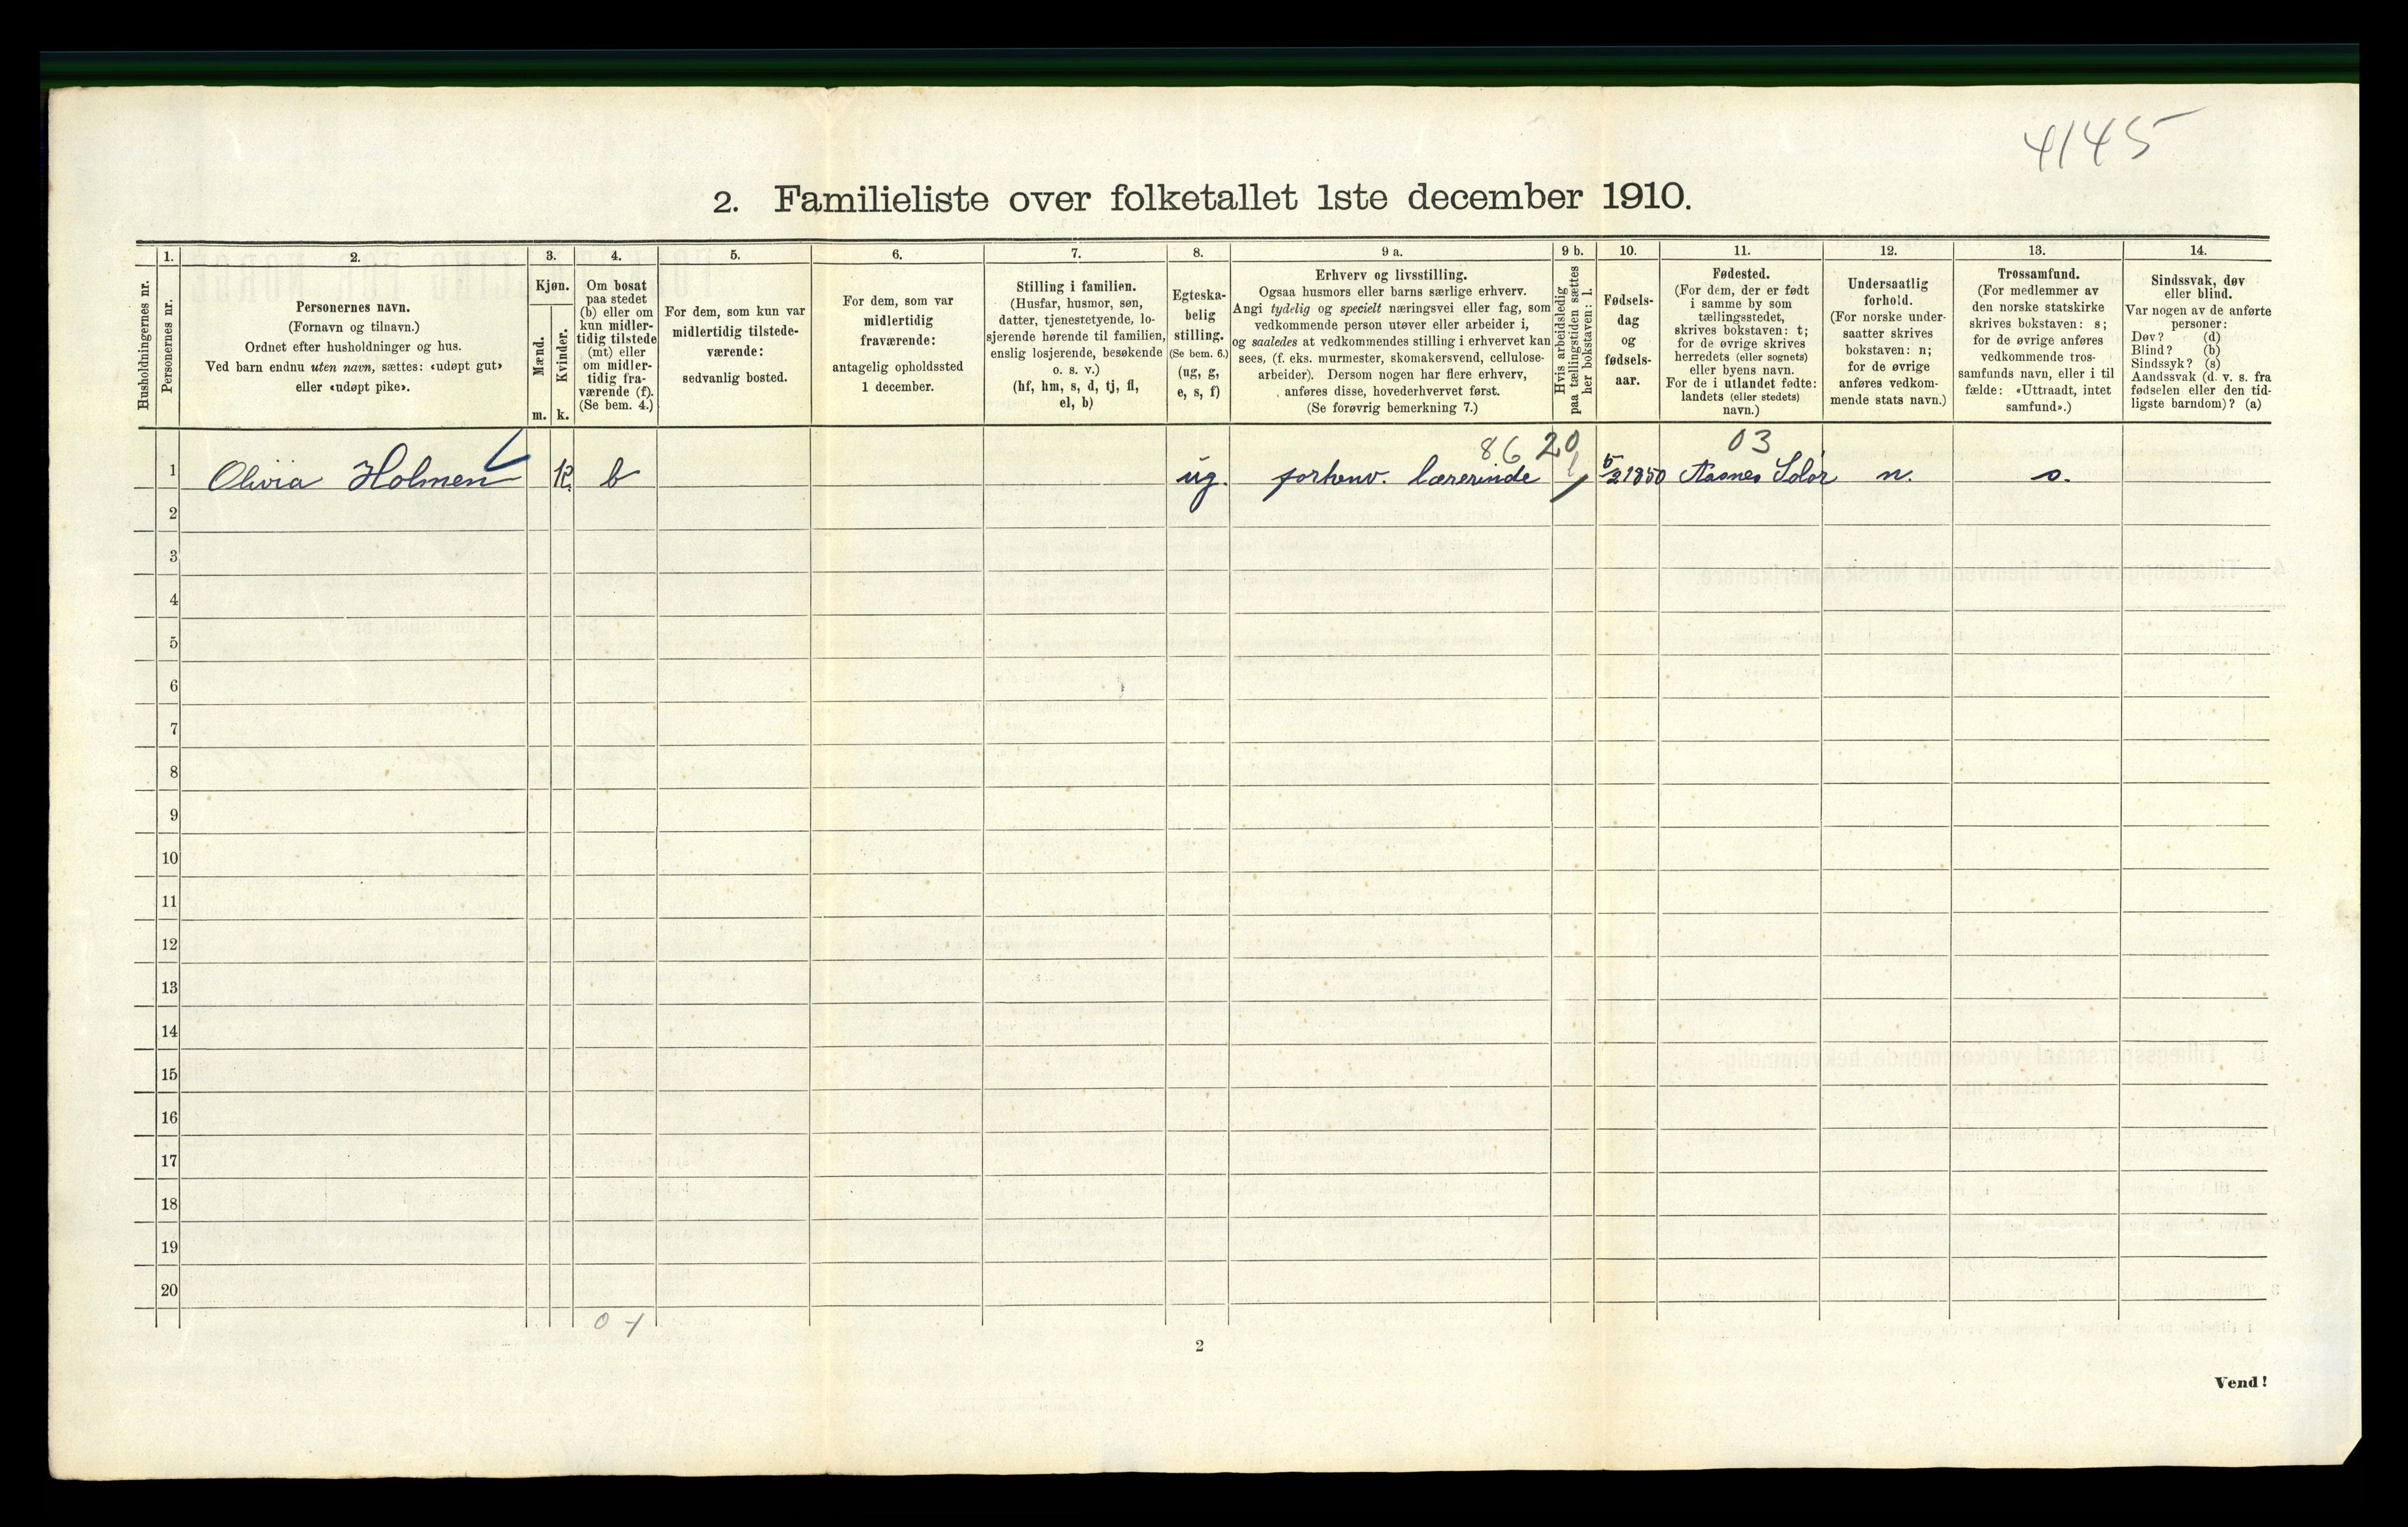 4145
2. Familieliste over folketallet 1ste december 1910.
Husholdningernes nr.
1.
Personernes nr.
2.
Personernes navn.
(Fornavn og tilnavn.)
Ordnet efter husholdninger og hus.
Ved barn endnu uten navn, sættes: «udøpt gut»
eller «udøpt pike».
3.
Kjøn.
Mænd.
Kvinder.
m. k.
4.
Om bosat
paa stedet
(b) eller om
kun midler-
tidig tilstede
(mt) eller
om midler-
tidig fra-
værende (f).
(Se bem. 4.)
5.
For dem, som kun var
midlertidig tilstede-
værende:
sedvanlig bosted.
6.
For dem, som var
midlertidig
fraværende:
antagelig opholdssted
1 december.
7.
Stilling i familien.
(Husfar, husmor, søn,
datter, tjenestetyende, lo-
sjerende hørende til familien,
enslig losjerende, besøkende
o. s. v.)
(hf, hm, s, d, tj, fl,
el, b)
8.
Egteska-
belig
stilling.
(Se bem. 6.)
(ug, g,
e, s, f)
9 a.
Erhverv og livsstilling.
Ogsaa husmors eller barns særlige erhverv.
Angi tydelig og specielt næringsvei eller fag, som
vedkommende person utøver eller arbeider i,
og saaledes at vedkommendes stilling i erhvervet kan
sees, (f. eks. murmester, skomakersvend, cellulose-
arbeider). Dersom nogen har flere erhverv,
anføres disse, hovederhvervet først.
(Se forøvrig bemerkning 7.)
9 b.
Hvis arbeidsledig
paa tællingstiden sættes
her bokstaven: l.
10.
Fødsels-
dag
og
fødsels-
aar.
11.
Fødested.
(For dem, der er født
i samme by som
tællingsstedet,
skrives bokstaven: t;
for de øvrige skrives
herredets (eller sognets)
eller byens navn.
For de i utlandet fødte:
landets (eller stedets)
navn.)
12.
Undersaatlig
forhold.
(For norske under-
saatter skrives
bokstaven: n;
for de øvrige
anføres vedkom-
mende stats navn.)
13.
Trossamfund.
(For medlemmer av
den norske statskirke
skrives bokstaven: s;
for de øvrige anføres
vedkommende tros-
samfunds navn, eller i til
fælde: «Uttraadt, intet
samfund».)
14.
Sindssvak, døv
eller blind.
Var nogen av de anførte
personer:
Døv? (d)
Blind? (b)
Sindssyk? (s)
Aandssvak (d. v. s. fra
fødselen eller den tid-
ligste barndom)? (a)
86 20 03
1 Olivia Holmen k. b ug. forhenv. lærerinde l 5/2 1850 Aasnes Solør n. s.
2
3
4
5
6
7
8
9
10
11
12
13
14
15
16
17
18
19
20
0-1
2
Vend!